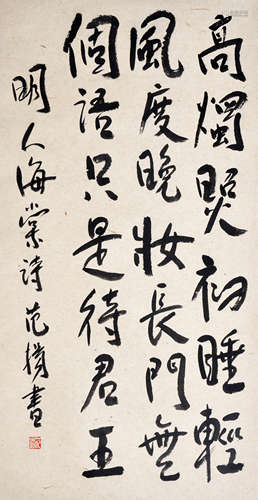 高燭照初睡輕
風度晚妝長門無
個語只是待君王
明人海棠詩范樸書